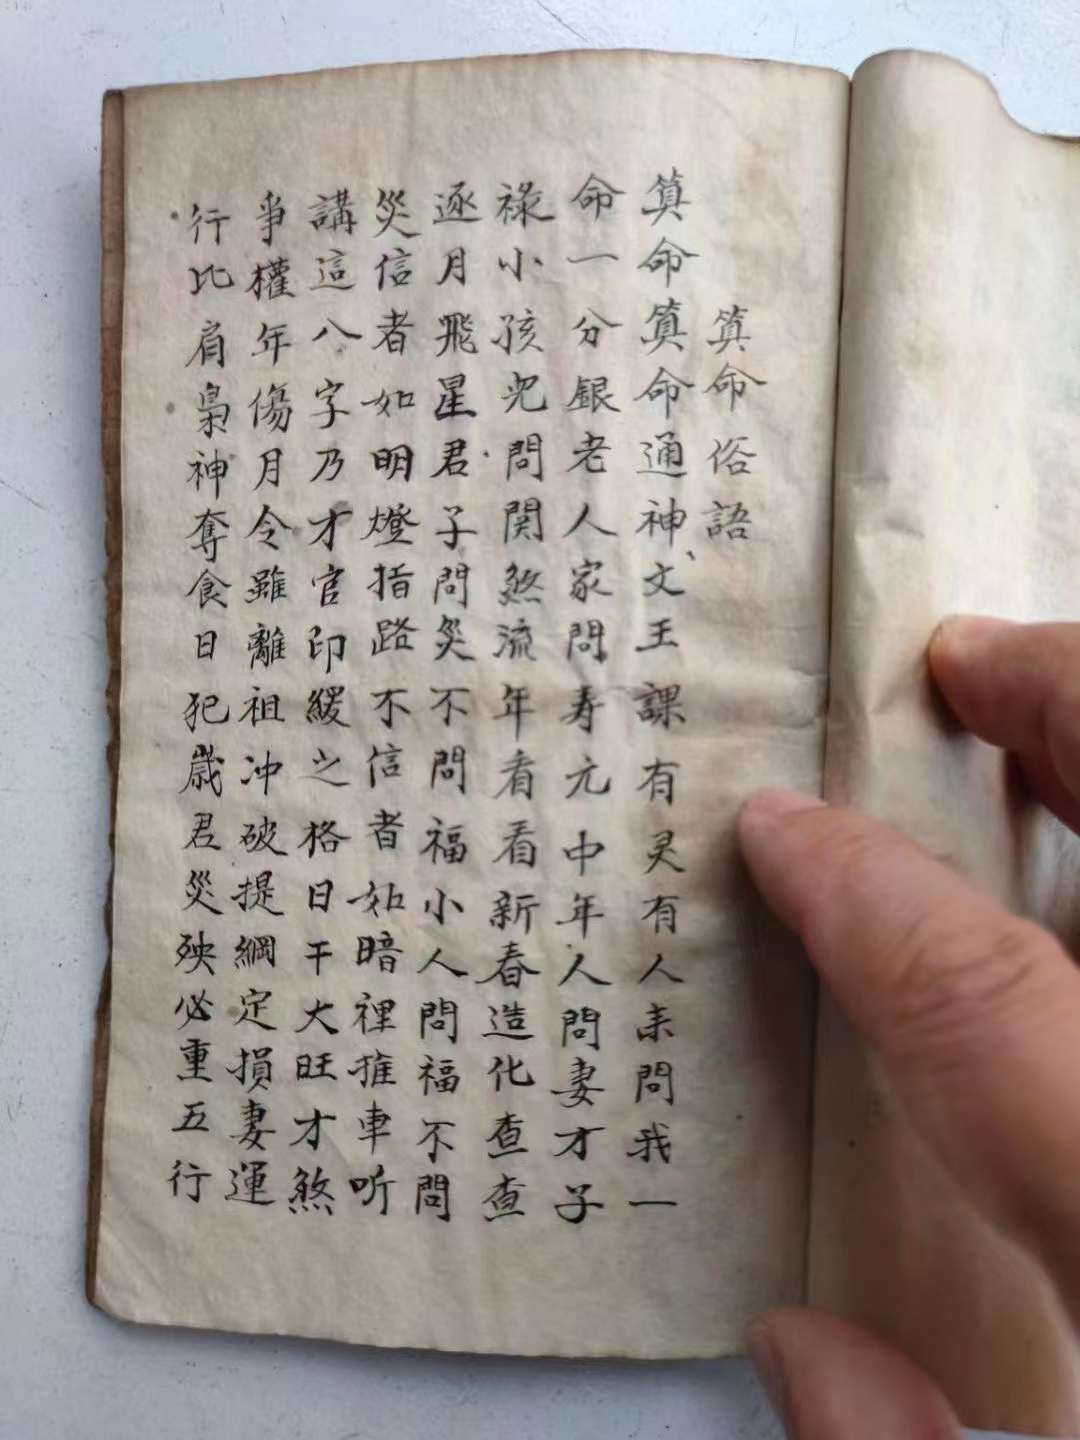 算命俗語
算命算命通神、文王課有灵有人来問我一
命一分銀老人家問寿元中年人問妻才子
祿小孩児問関煞流年看看新春造化查查
逐月飛星君子問災不問福小人問福不問
災信者如明燈指路不信者如暗裡推車听
講這八字乃才官印綬之格日干大旺才煞
爭權年傷月令雖離祖沖破提綱定損妻運
行比肩梟神奪食日犯歲君災殃必重五行